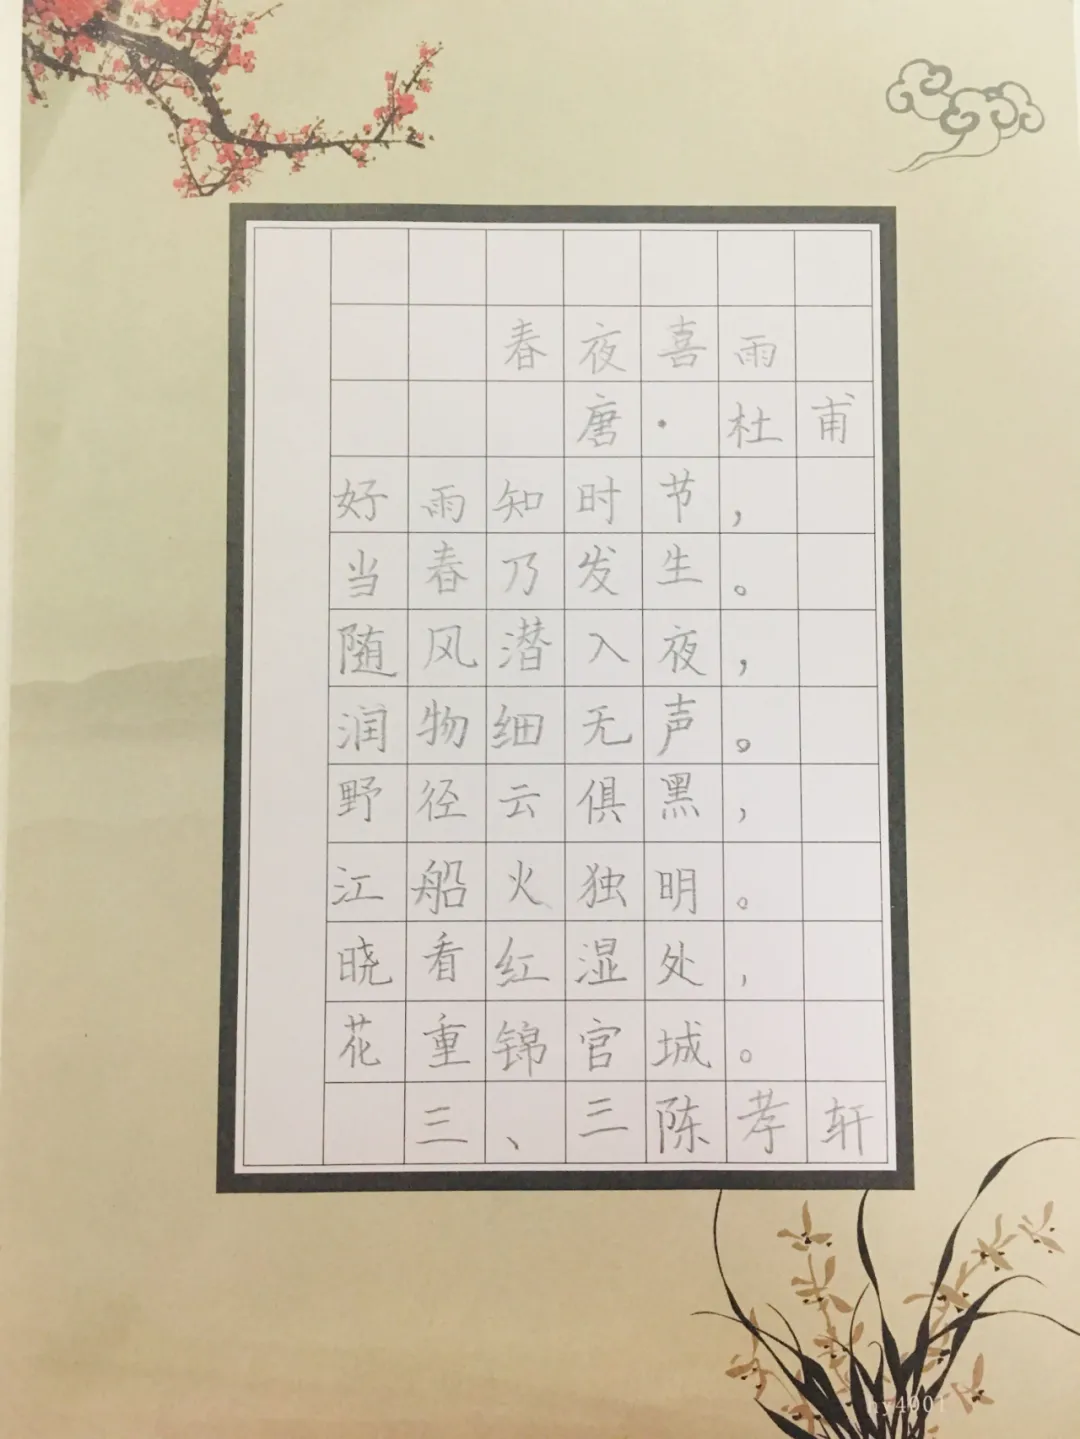 春夜喜雨
唐·杜甫
好雨知时节，
当春乃发生。
随风潜入夜，
润物细无声。
野径云俱黑，
江船火独明。
晓看红湿处，
花重锦官城。
三、三陈孝轩
hy4001